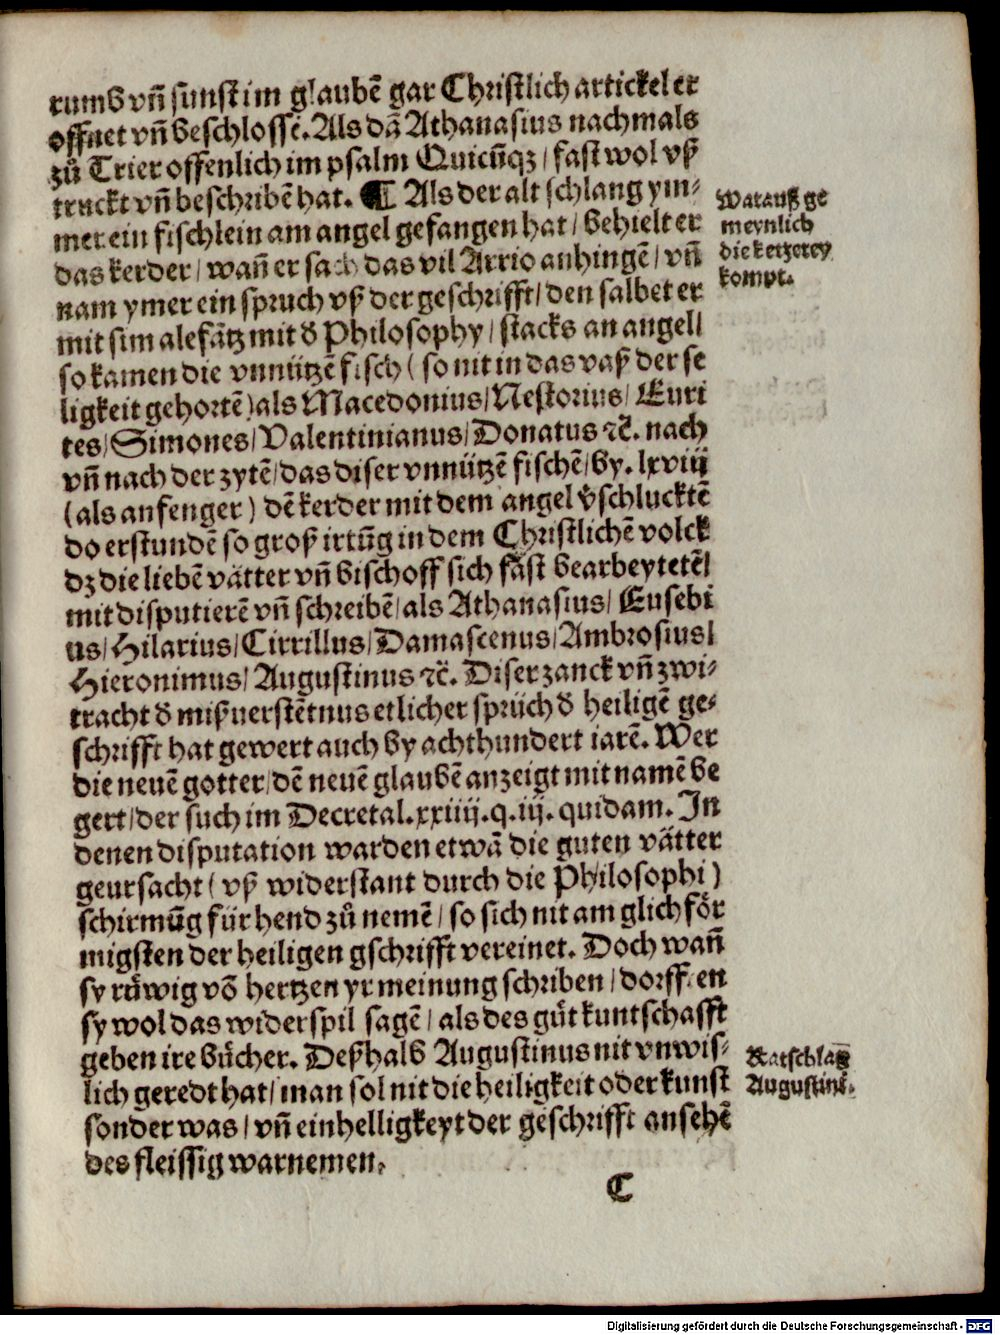 rumb vñ sunst im glaubē gar Christlich artickel er
offnet vñ beschlossē. Als dā Athanasius nachmals
zů Trier offenlich im psalm Quicūqꝫ / fast wol vß
truckt vñ beschribē hat. ¶ Als der alt schlang ym⸗
mer ein fischlein am angel gefangen hat / behielt er
das kerder / wañ er sach das vil Arrio anhingē / vñ
nam ymer ein spruch vß der geschrifft / den salbet er
mit sim alefātz mit d̄ Philosophy / stacks an angel /
so kamen die vnnützē fisch ( so nit in das vaß der se
ligkeit gehortē ) als Macedonius / Nestorius / Euri
tes / Simones / Valentinianus / Donatus ⁊c̄. nach
vñ nach der zytē / das diser vnnützē fischē / by . lxviij
(als anfenger) dē kerder mit dem angel v̄schlucktē
do erstundē so groß irtūg in dem Christlichē volck
dz die liebē vätter vñ bischoff sich fast bearbeytetē /
mit disputierē vñ schreibē / als Athanasius / Eusebi
us / Hilarius / Cirrillus / Damascenus / Ambrosius /
Hieronimus / Augustinus ⁊c̄. Diser zanck vñ zwi⸗
tracht d̄ mißuerstētnus etlicher sprüch d̄ heiligē ge⸗
schrifft hat gewert auch by achthundert iarē. Wer
die neuē gotter / dē neuē glaubē anzeigt mit namē be
gert / der such im Decretal. xxiiij. q. iij. quidam. In
denen disputation warden etwā die guten vätter
geursacht ( vß widerstant durch die Philosophi )
schirmūg für hend zů nemē / so sich nit am glich för
migsten der heiligen gschrifft vereinet. Doch wañ
sy růwig vō hertzen yr meinung schriben / dorffen
sy wol das widerspil sagē / als des gůt kuntschafft
geben ire bücher. Deßhalb Augustinus nit vnwis⸗
lich geredt hat / man sol nit die heiligkeit oder kunst
sonder was / vñ einhelligkeyt der geschrifft ansehē
des fleissig warnemen.
C
Warauß ge
meynlich
die ketzerey
kompt.
Ratschlag
Augustini.
Digitalisierung gefördert durch die Deutsche Forschungsgemeinschaft - DFG